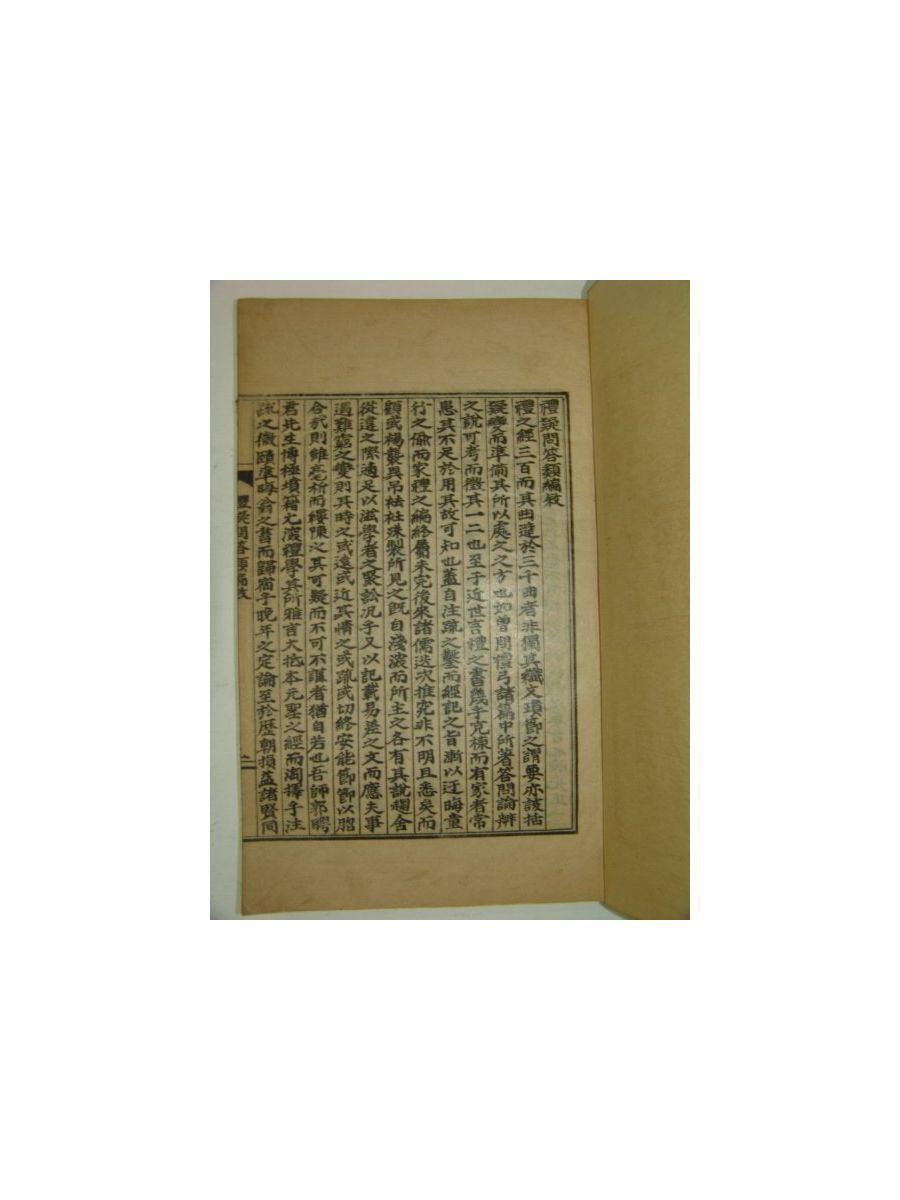 禮疑問答類編敘
禮之經三百而其曲達於三千曲者非獨其纖文瑣節之謂要亦該括
疑變而準備其所以處之之方也如曾問檀弓諸篇中所著答問論辨
之說可考而徵其一二也至于近世言禮之書幾乎充棟而有家者常
患其不足於用其故可知也蓋自注疏之鑿而經記之旨漸以迂晦童
行之偷而家禮之編終屬未完後來諸儒迭次推究非不明且悉矣而
顧或楊襲異吊袪社殊製所見之旣自淺深而所主之各有其說趨舍
從違之際適足以滋學者之聚訟汎乎又以記載易差之文而應夫事
遇難窮之變則其時之或遠或近其情之或疏或切終安能節節以脗
合哉則雖毫析而縷陳之其可疑而不可不講者猶自若也吾師郭聘
君先生博極墳籍尤深禮學其所雅言大抵本元聖之經而淘擇乎注
疏之微頤準晦翁之書而歸宿乎晚年之定論至於歷朝損益諸賢同
禮疑問答類編敘